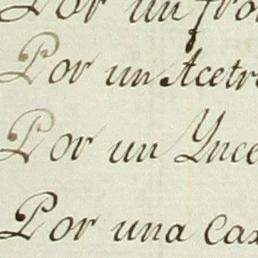 Por un fro
Por un Acetr
Por un Ynce
Por una Cax